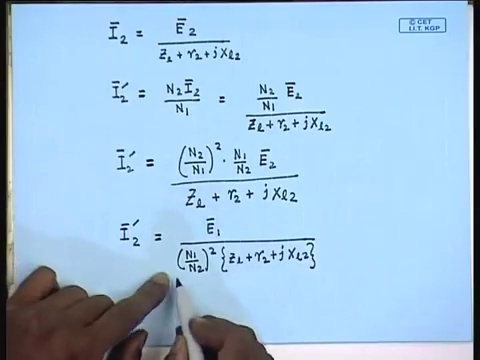 © CET
I.I.T. KGP
Ī₂ = Ē₂ / (Z_l + r₂ + j x_l2)
Ī₂′ = N₂Ī₂ / N₁ = (N₂/N₁) Ē₂ / (Z_l + r₂ + j x_l2)
Ī₂′ = (N₂/N₁)² · (N₁/N₂) Ē₂ / (Z_l + r₂ + j x_l2)
Ī₂′ = Ē₁ / ((N₁/N₂)² {Z_l + r₂ + j x_l2})